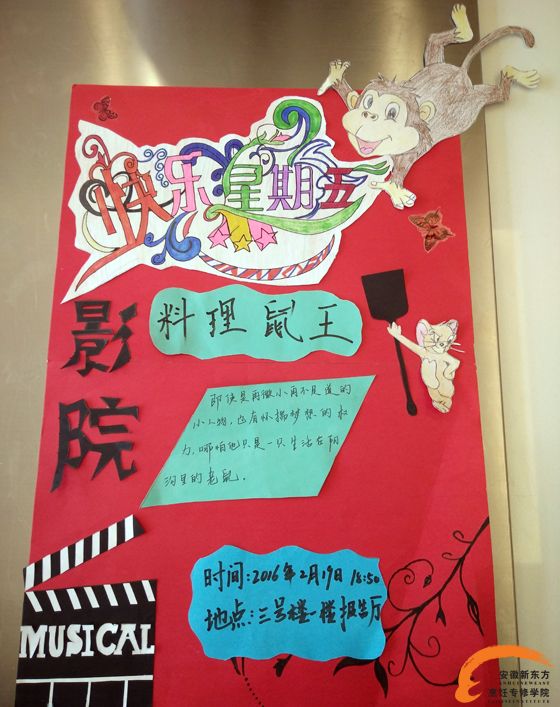 快乐星期五
影院
料理鼠王
即使是再微小再不足道的
小人物,也有怀揣梦想的权
力,哪怕他只是一只生活在阴
沟里的老鼠.
时间:2016年2月19日 18:50
地点:三号楼一楼报告厅
MUSICAL
安徽新东方
烹饪专修学院